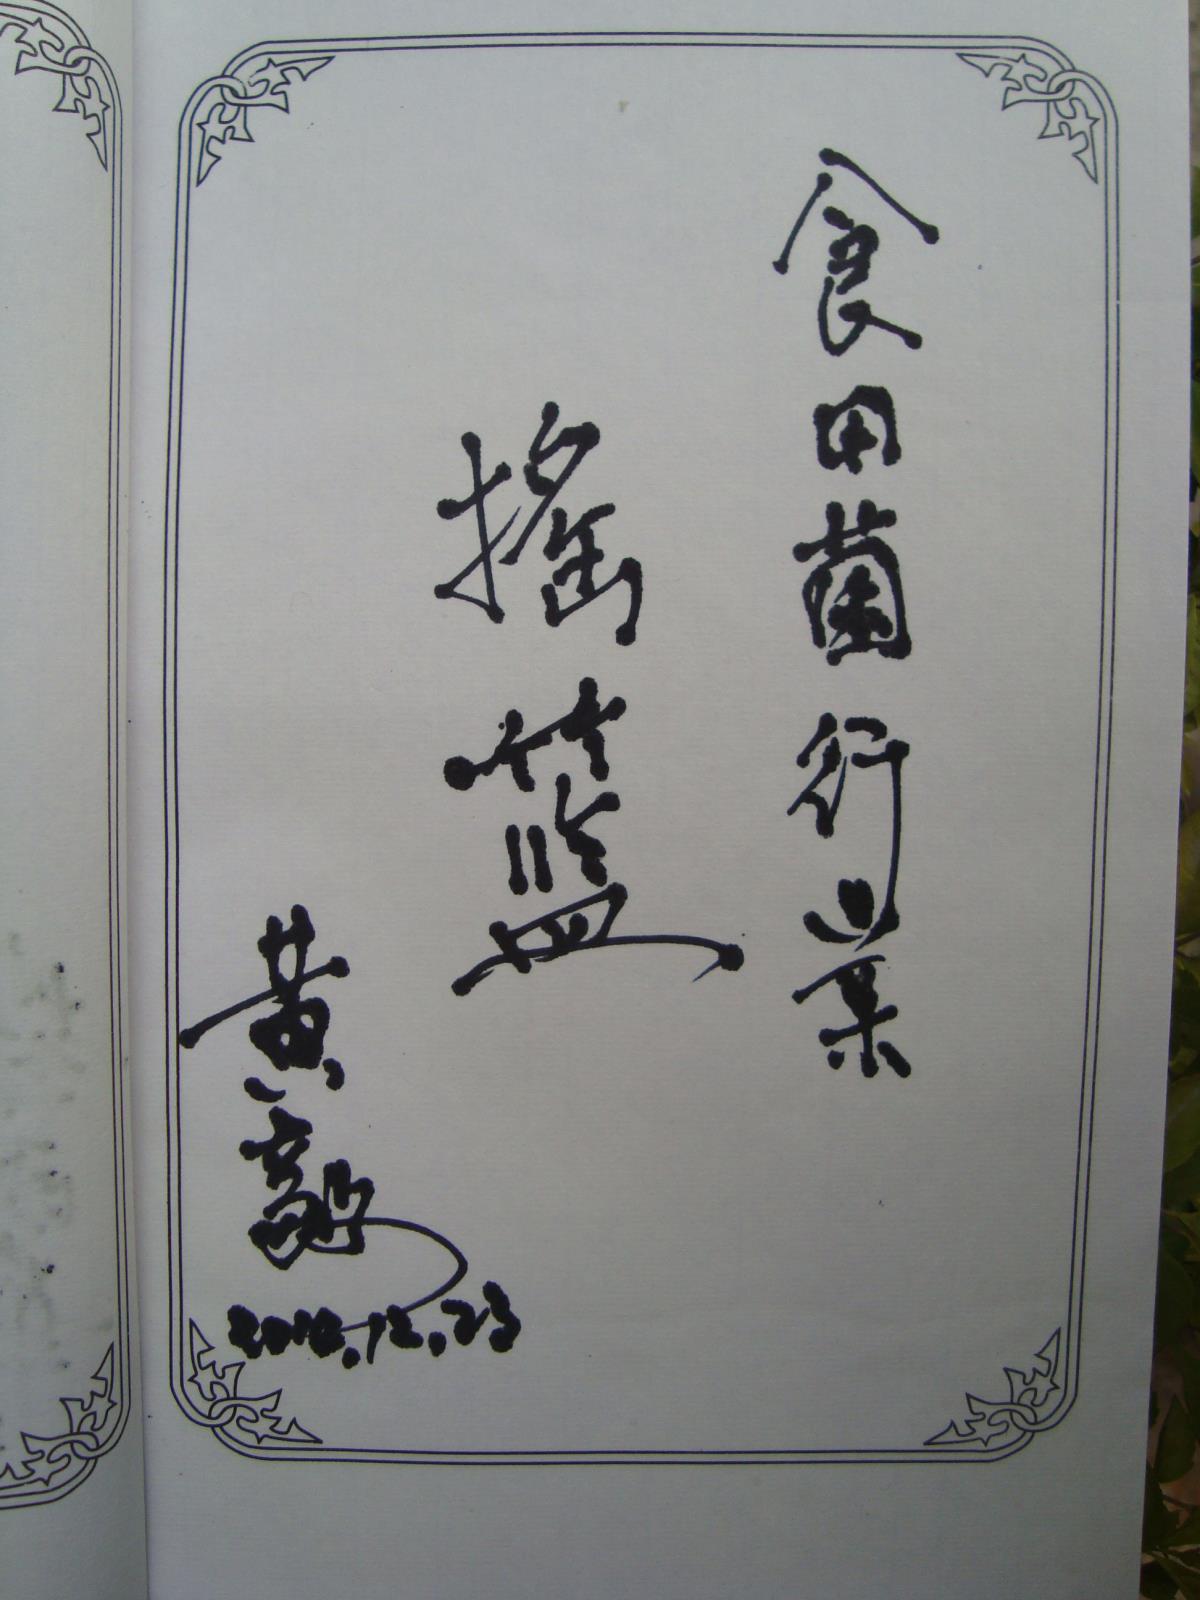 食用菌行業
搖籃
黄毅
2010.12.23